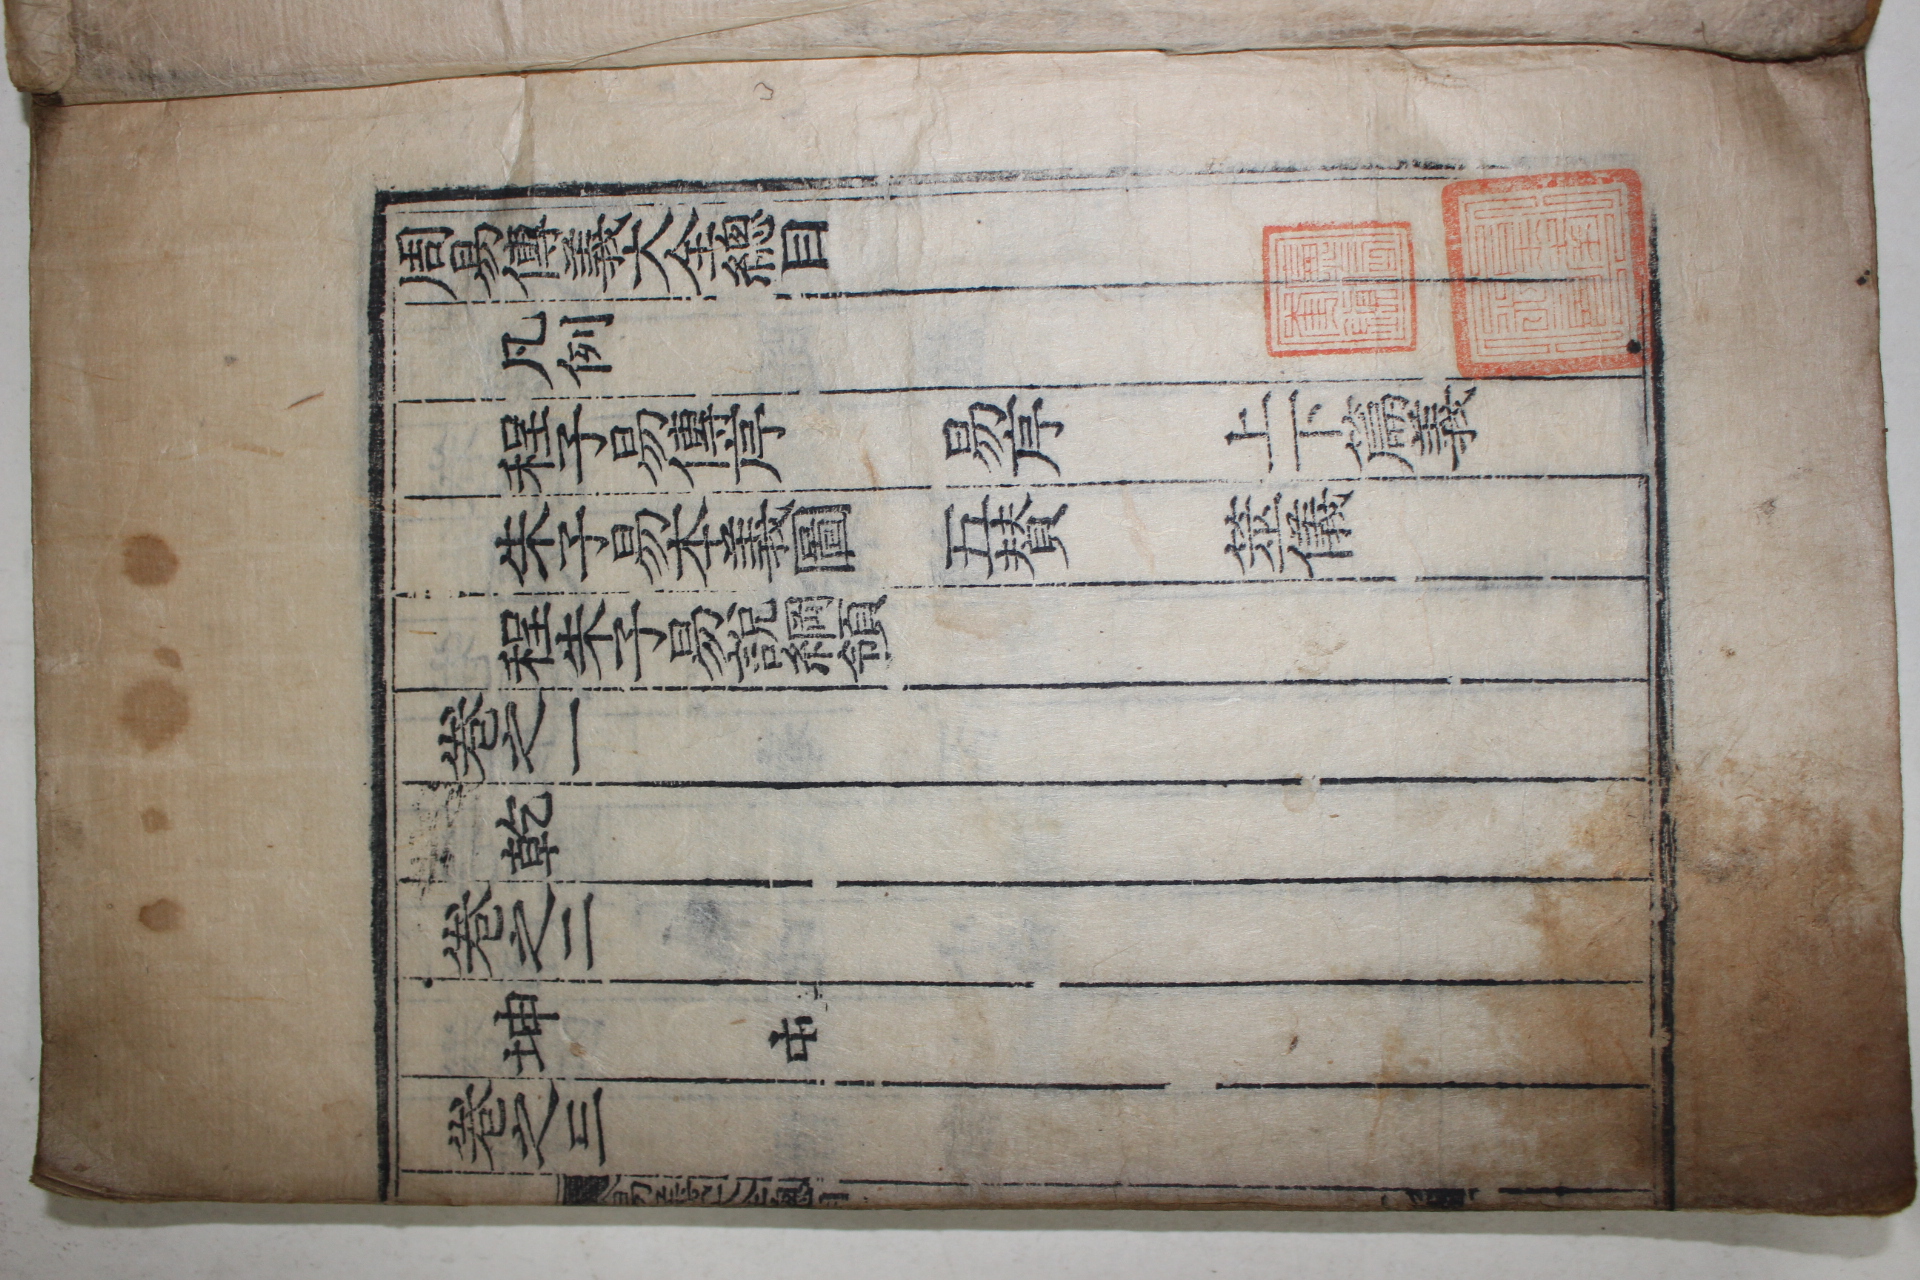 周易傳義大全總目
凡例
程子易傳序 易序 上下篇義
朱子易本義圖 五賛 筮儀
程朱子易說綱領
卷之一
乾
卷之二
坤
卷之三